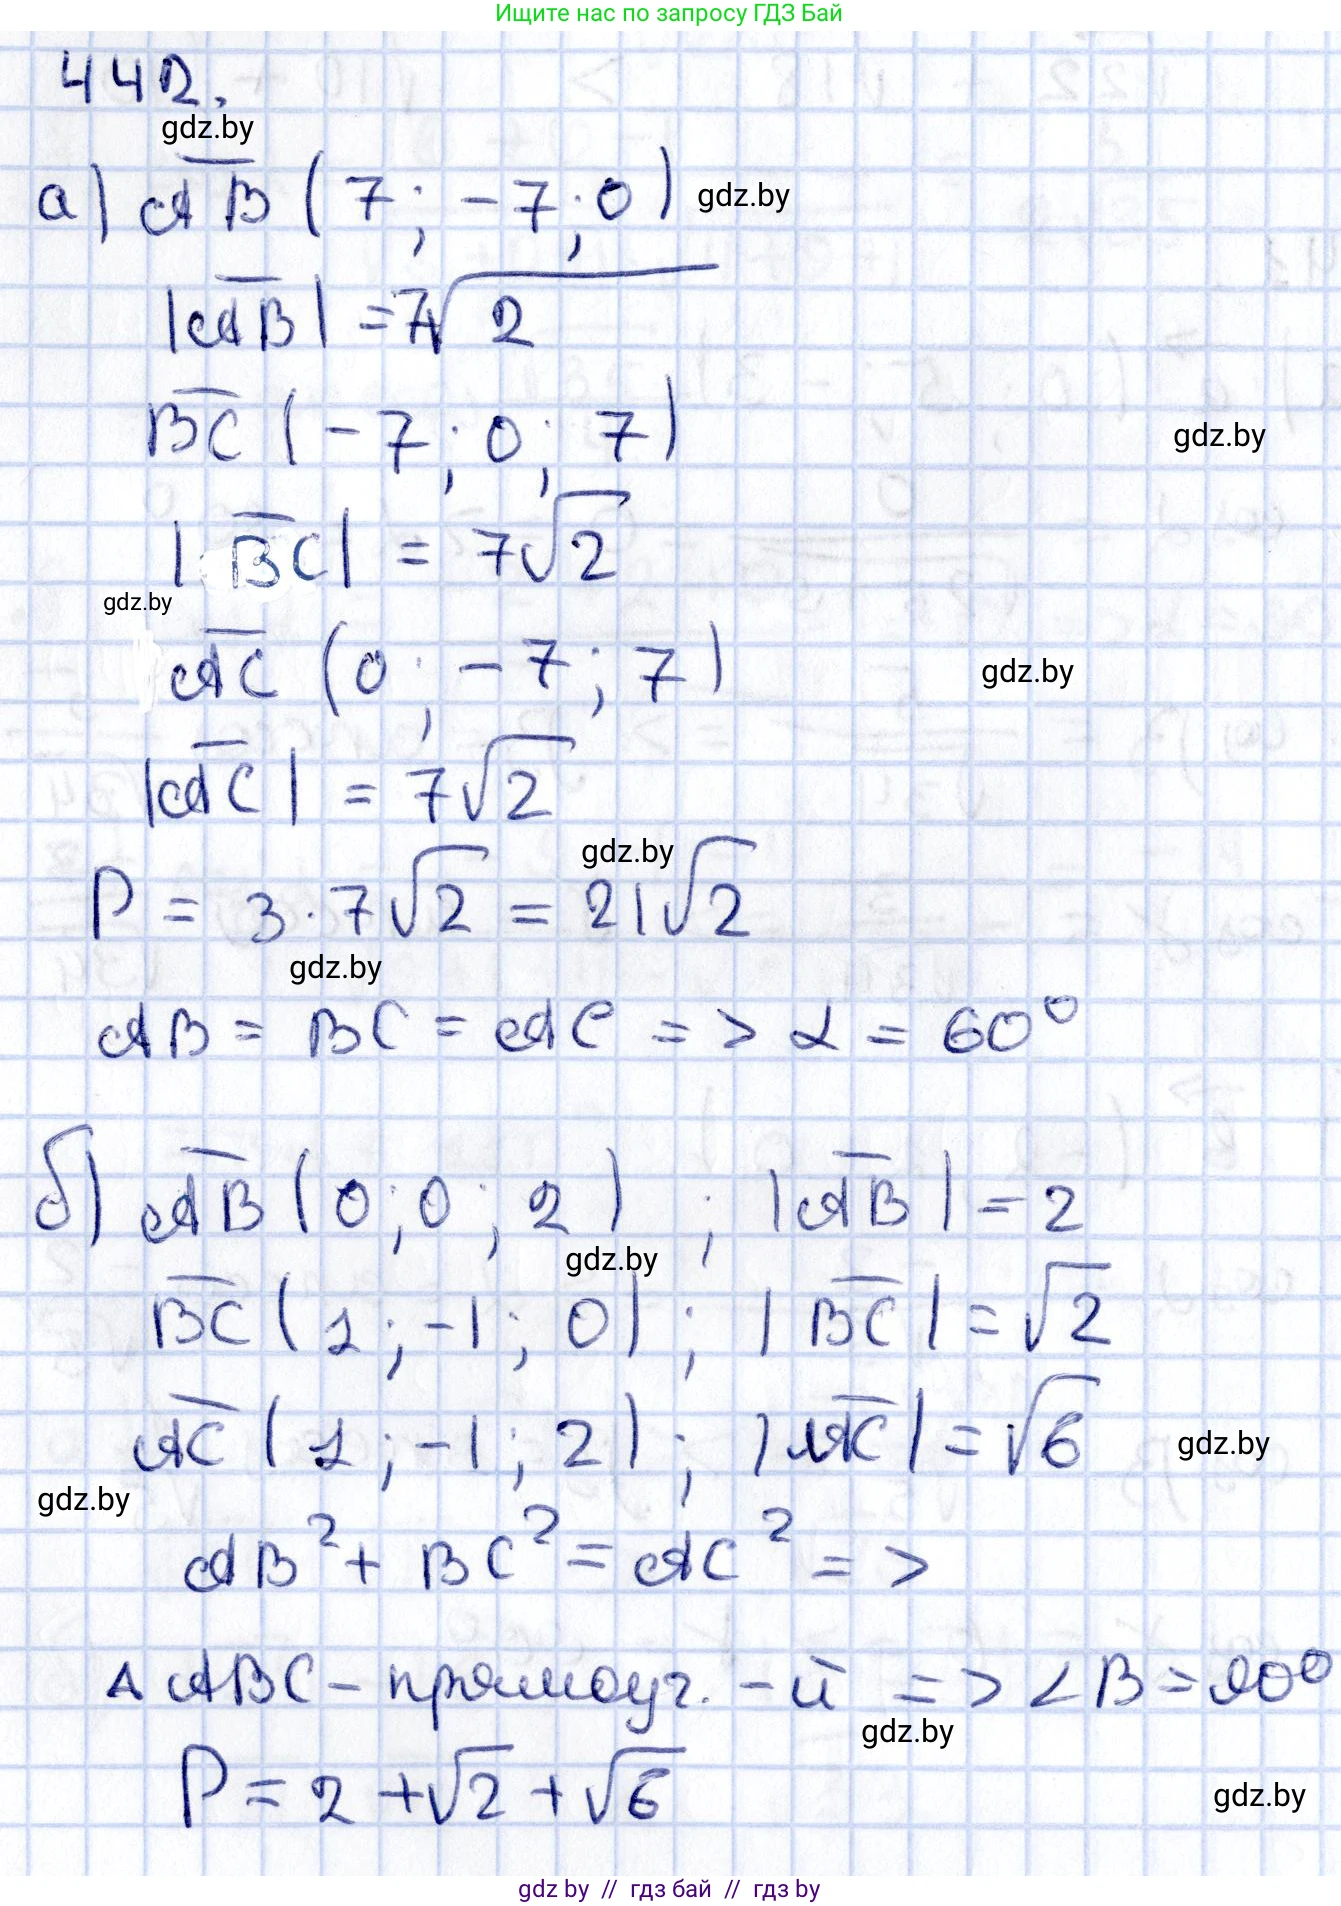 Ищите нас по запросу ГДЗ Бай
442.
gdz.by
а) AB (7; -7; 0) gdz.by
|AB| = 7√2
BC (-7; 0; 7)
gdz.by
|BC| = 7√2
gdz.by
AC (0; -7; 7) gdz.by
|AC| = 7√2
gdz.by
P = 3·7√2 = 21√2
gdz.by
AB = BC = AC => α = 60°
б) AB (0; 0; 2) ; |AB| = 2
gdz.by
BC (1; -1; 0) ; |BC| = √2
AC (1; -1; 2) ; |AC| = √6 gdz.by
gdz.by
AB² + BC² = AC² =>
Δ ABC - прямоуг. - й => ∠B = 90°
gdz.by
P = 2 + √2 + √6 gdz.by
gdz by // гдз бай // гдз by